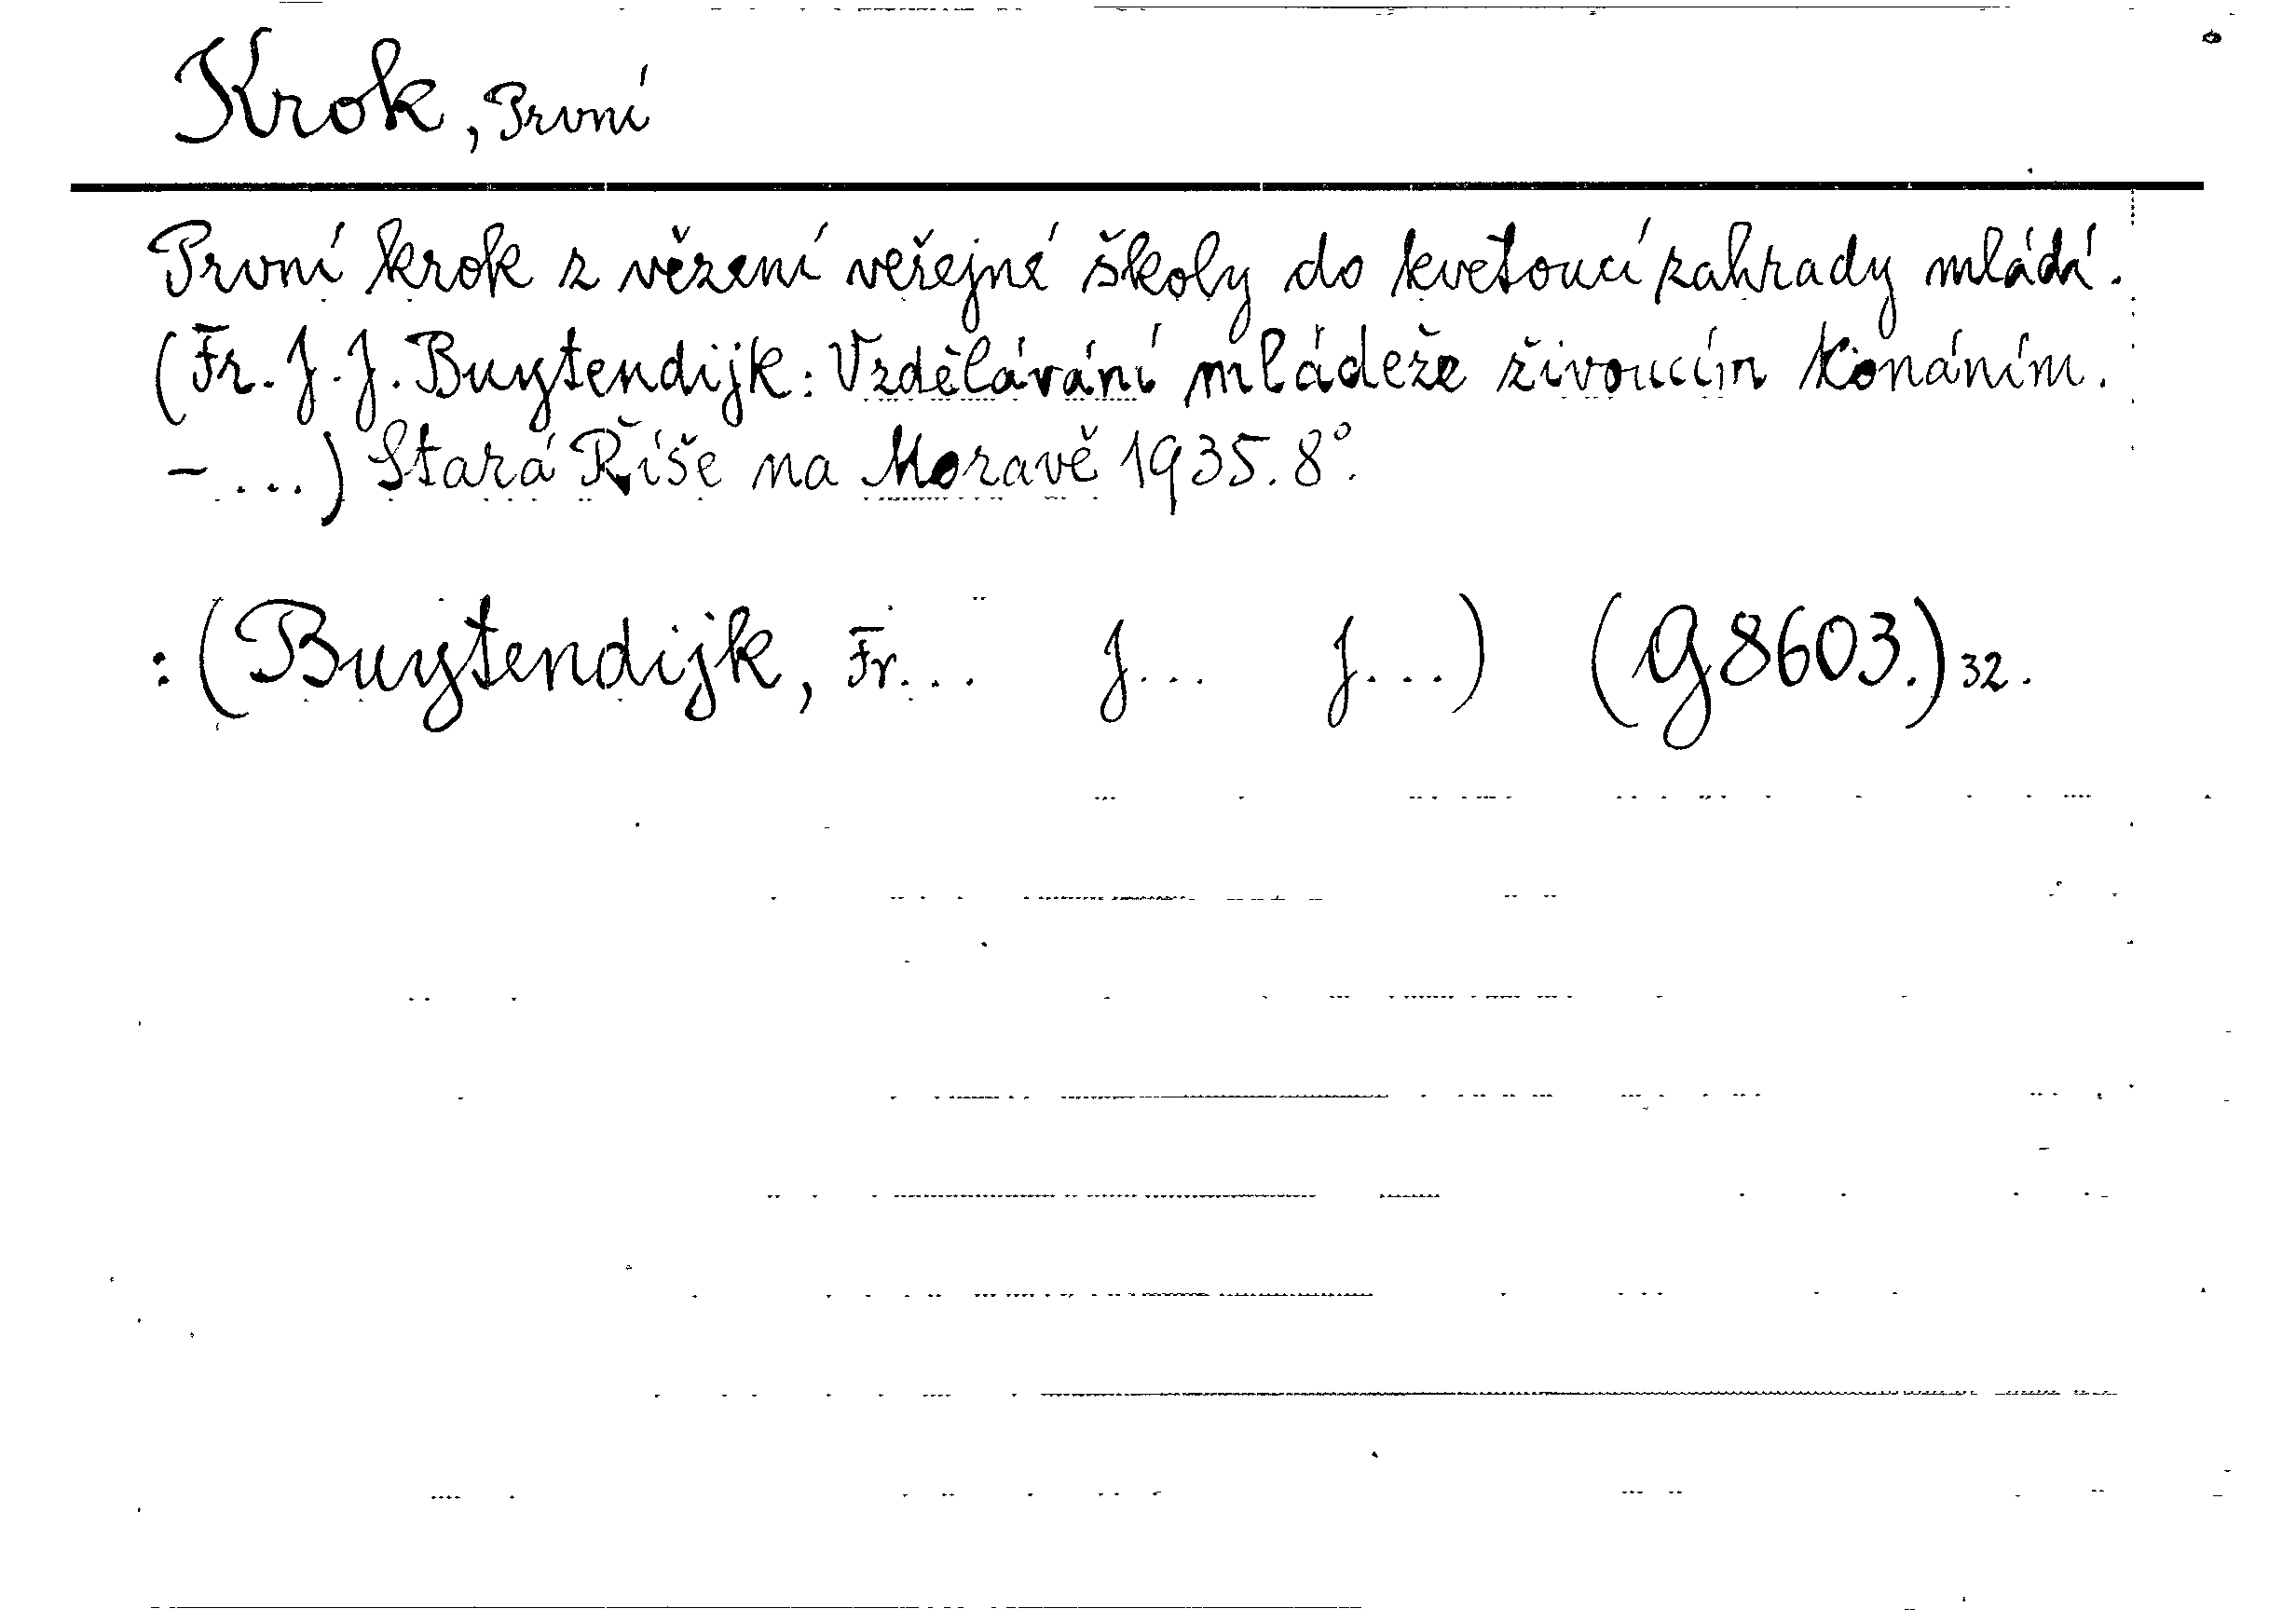 Krok, První
První krok z vězení veřejné školy do kvetoucí zahrady mládí.
(Fr. J. J. Buytendijk: Vzdělávání mládeže živoucím konáním.
- ...) Stará Říše na Moravě 1935. 8°.
: (Buytendijk, Fr... J... J...) (G 8603.) 32.